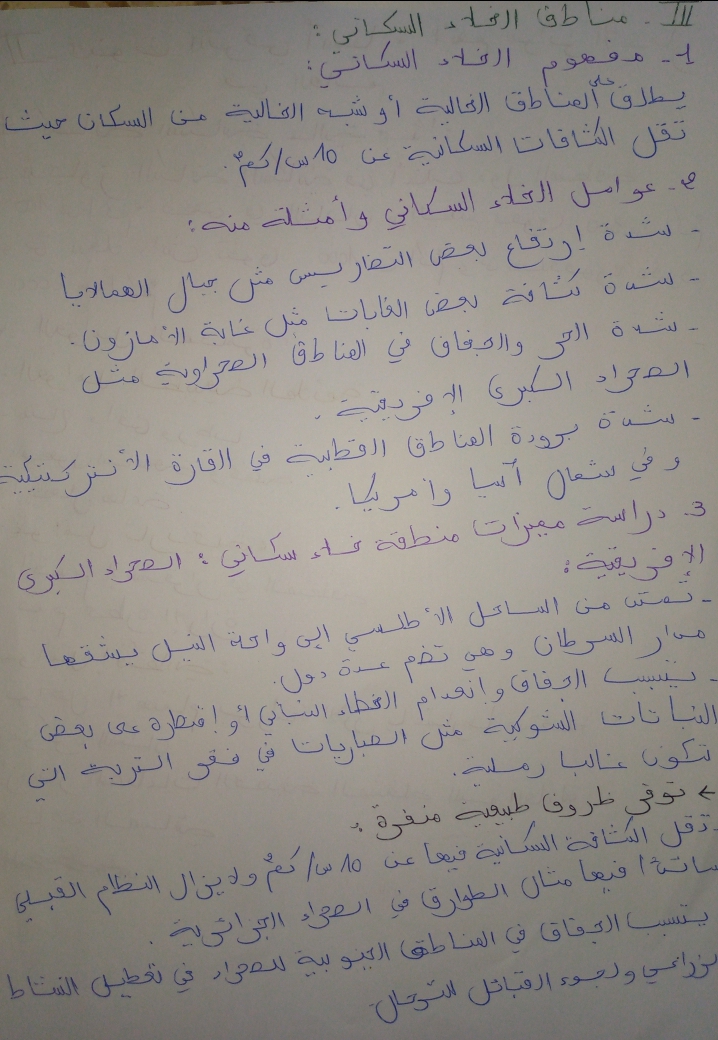 III - مناطق الخلاء السكاني:
1- مفهوم الخلاء السكاني:
يطلق على المناطق الخالية أو شبه الخالية من السكان حيث
تقل الكثافات السكانية عن 10 س/كم².
2- عوامل الخلاء السكاني وأمثلة منه:
- شدة إرتفاع بعض التضاريس مثل جبال الهمالايا
- شدة كثافة بعض الغابات مثل غابة الأمازون.
- شدة الحر والجفاف في المناطق الصحراوية مثل
الصحراء الكبرى الإفريقية.
- شدة برودة المناطق القطبية في القارة الأنتركتيكية
و في شمال آسيا وامريكا.
3- دراسة مميزات منطقة خلاء سكاني: الصحراء الكبرى
الإفريقية:
- تمتد من الساحل الأطلسي إلى واحة النيل يشقها
مدار السرطان وهي تضم عدة دول.
- يتسبب الجفاق وانعدام الغطاء النباتي أو إقتطاره على بعض
النباتات الشوكية مثل الصباريات في فقر التربة التي
تكون غالبا رملية.
← توفى ظروف طبيعية منفرة:
- تقل الكثافة السكانية فيها عن 10 س/كم² ولا يزال النظام القبلي
سائدا فيها مثال الطوارق في الصحراء الجزائرية.
يتسبب الجفاق في المناطق الجنوبية للصحراء في تعطيل النشاط
الزراعي ولجوء القبائل للترحال.